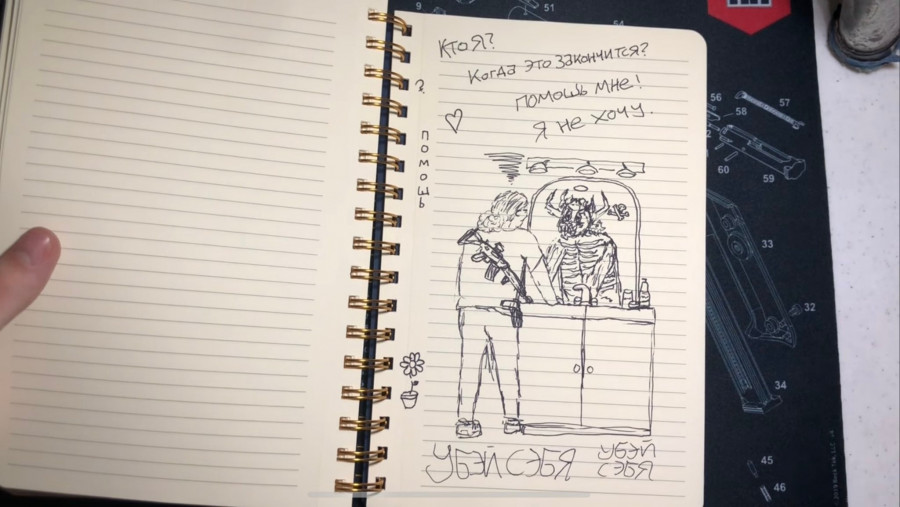 9
51
КТО Я?
КОГДА ЭТО ЗАКОНЧИТСЯ?
ПОМОШЬ МНЕ!
Я НЕ ХОЧУ.
?
ПОМОШЬ
УБЭЙ СЭБЯ
УБЭЙ
СЭБЯ
56
57
58
60
59
33
32
34
45
46